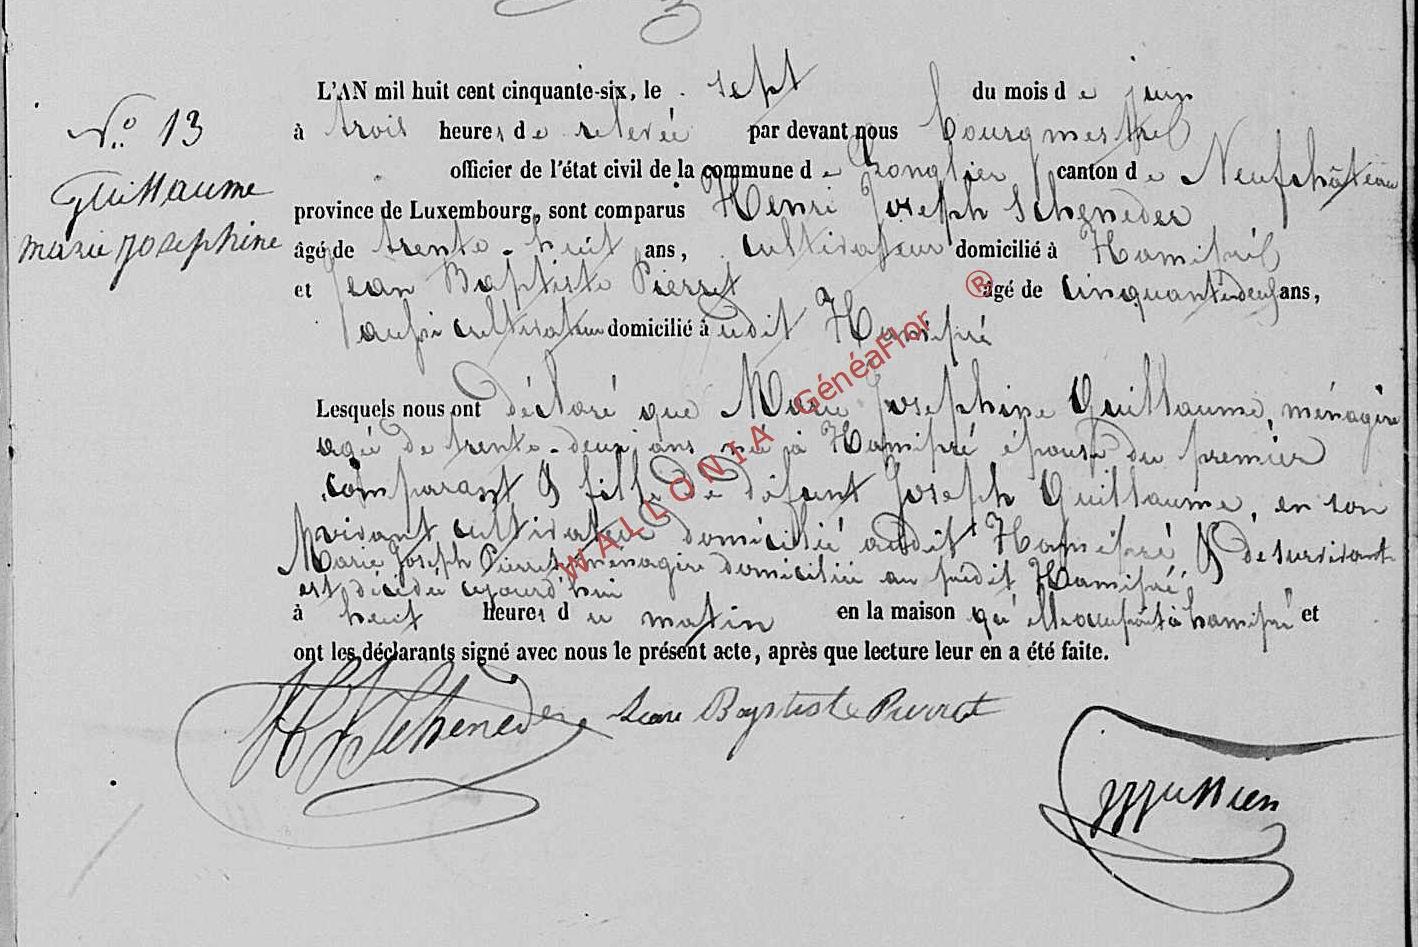 N.o 13
Guillaume
marie josephine
L'AN mil huit cent cinquante-six, le sept du mois de juin
à trois heures de relevée par devant nous bourgmestre
officier de l'état civil de la commune de Longlier canton de Neufchâteau
province de Luxembourg, sont comparus Henri Joseph Scheneder
âgé de trente-huit ans, cultivateur domicilié à Hamipré
et Jean Baptiste Pierret âgé de cinquante ans,
aussi cultivateur domicilié à udit Hamipré
Lesquels nous ont déclaré que Marie Josephine Guillaume, ménagère
agée de trente-deux ans née à Hamipré épouse du premier
comparant & fille de défunt Joseph Guillaume, en son
vivant cultivateur domicilié audit Hamipré & de survivante
Marie Joseph Pierret ménagère domiciliée au prédit Hamipré,
est décédée cejourd'hui
à huit heures du matin en la maison qu'elle occupait à hamipré et
ont les déclarants signé avec nous le présent acte, après que lecture leur en a été faite.
HJ Scheneder Jean Baptiste Pierret
WALLONIA GénéaFlor ®